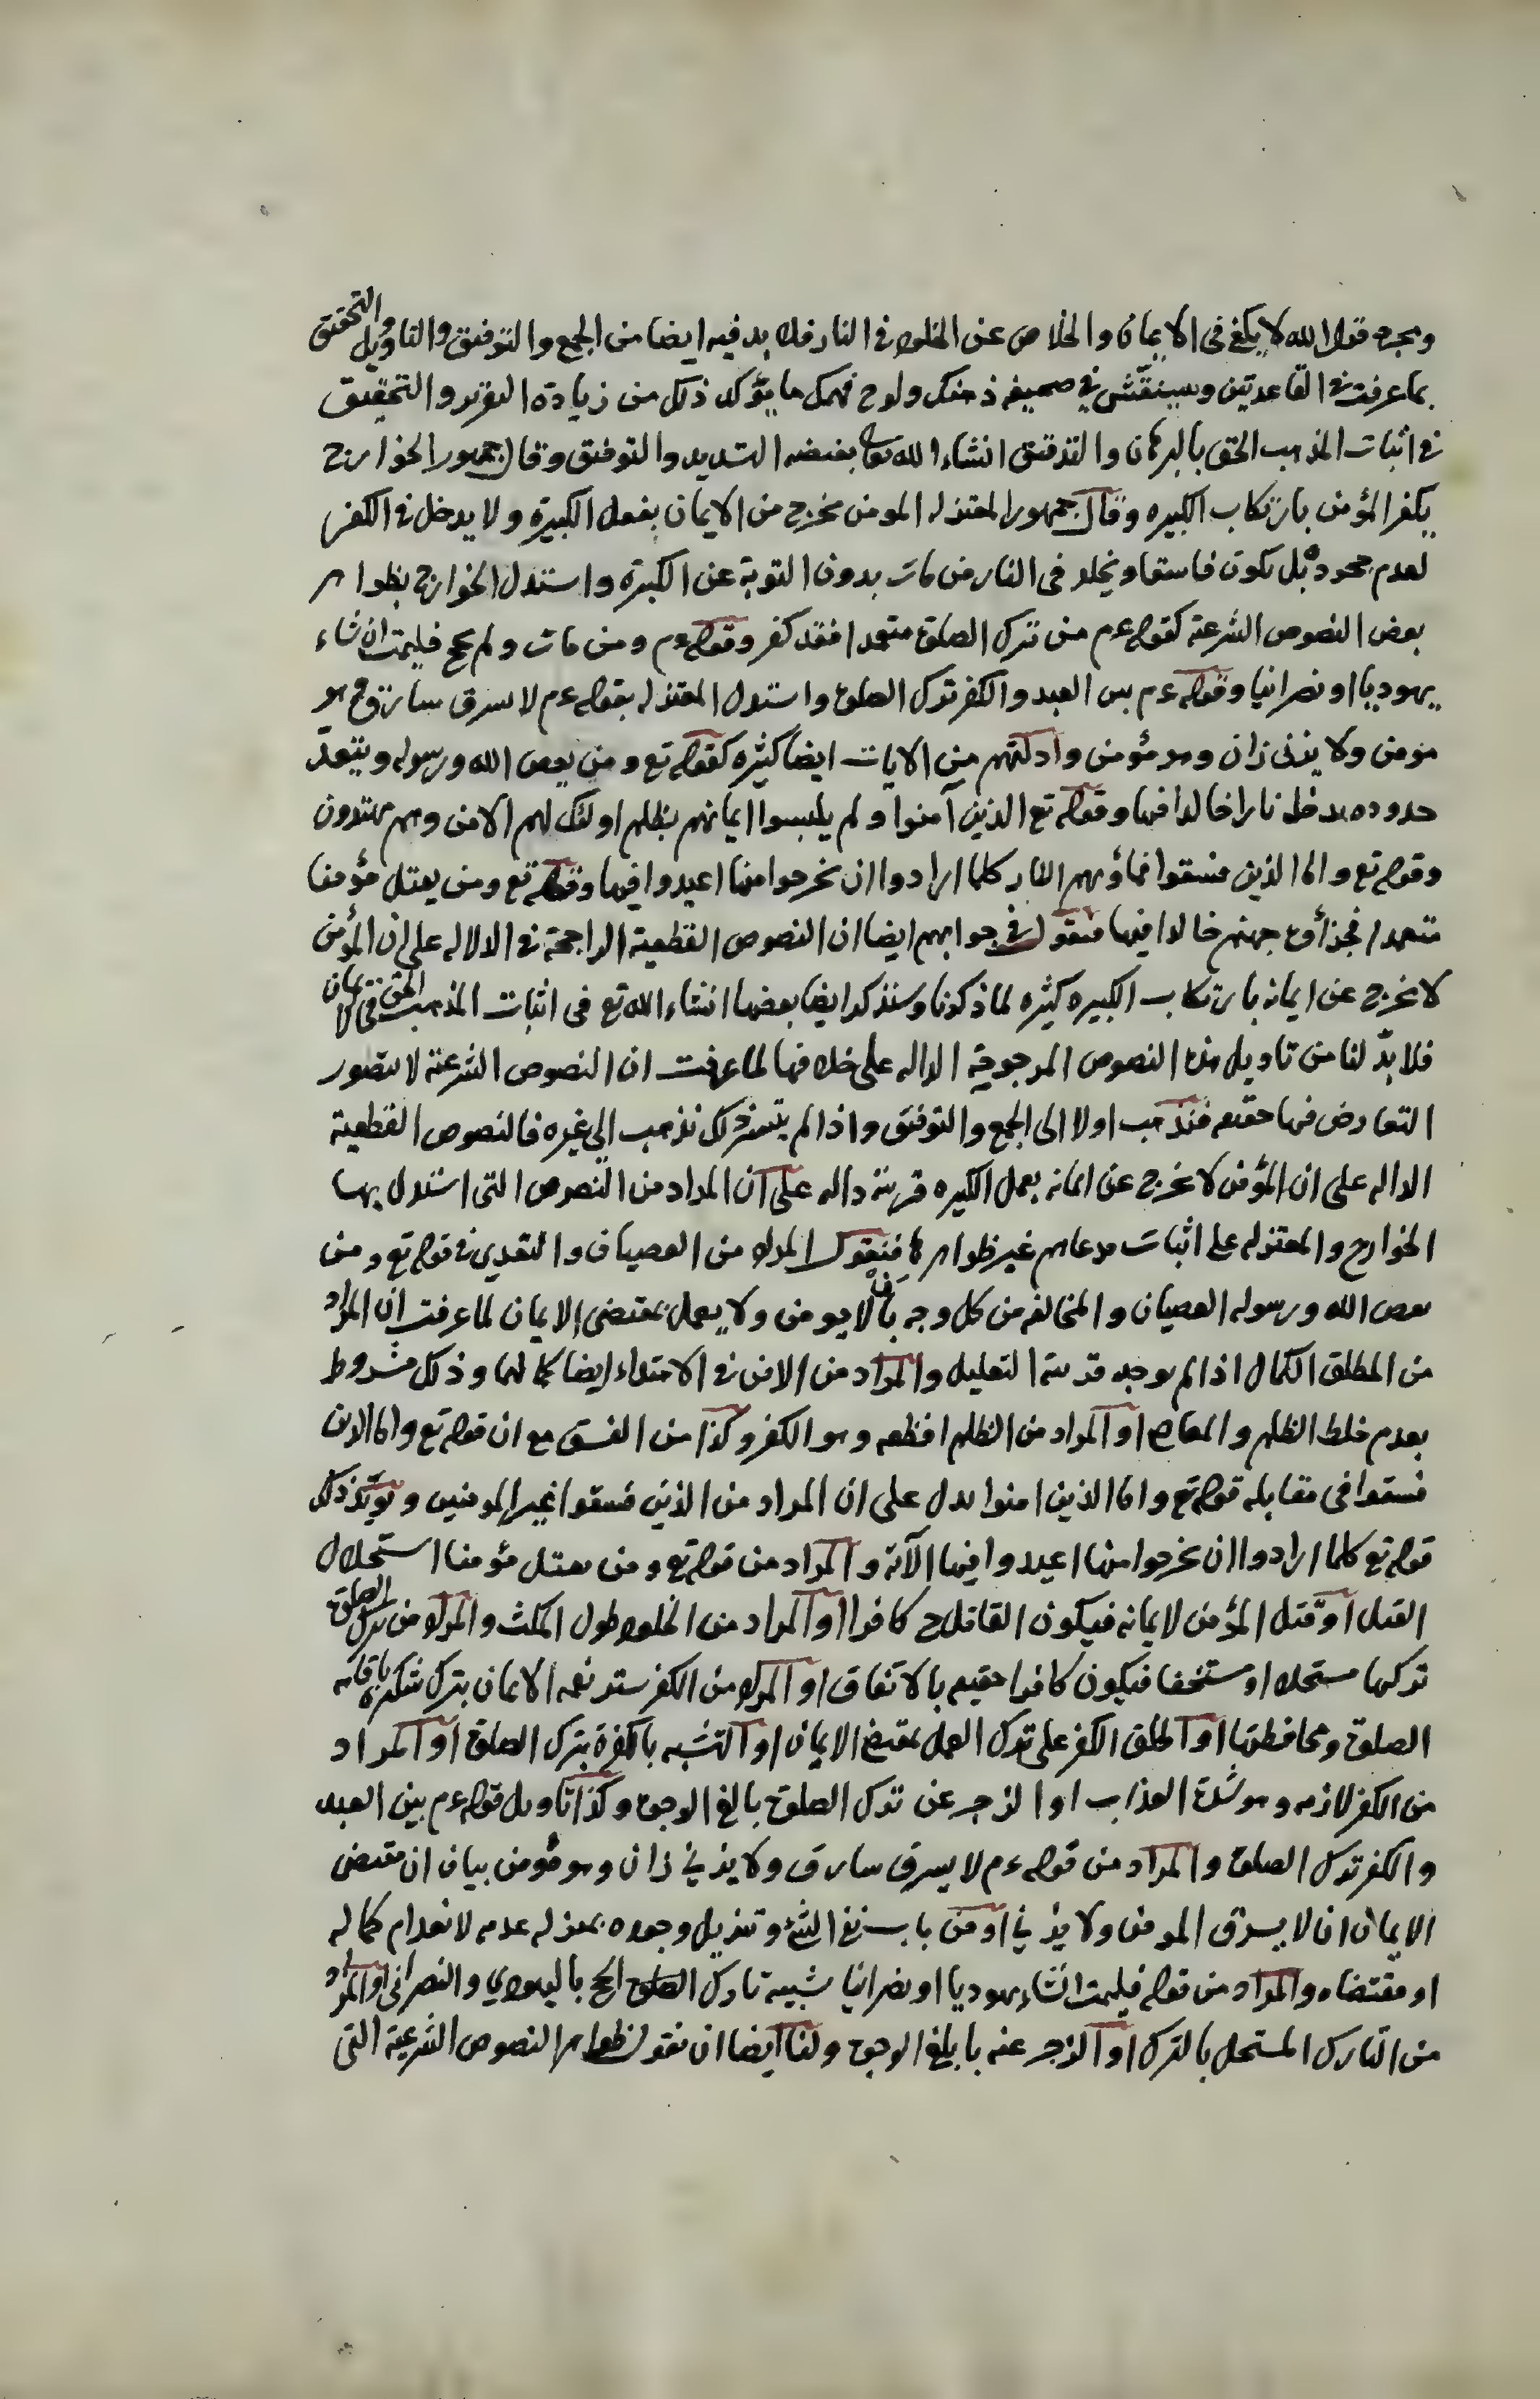 ومجرد قول لا اله الا الله لا يكفى فى الايمان والخلاص عن الخلود فى النار فلا بد فيه ايضا من الجمع والتوفيق والتاويل والتحقيق
بما عرفت فى القاعدتين وسينقّش فى صحيفه ذهنك ولوح فهمك ما يؤكد ذلك من زيادة التقرير والتحقيق
فى اثبات المذهب الحق بالبرهان والتدقيق انشاء الله تعالى بفيضه التسديد والتوفيق وقال جمهور الخوارج
يكفر المؤمن بارتكاب الكبيره وقال جمهور المعتزله المومن يخرج من الايمان بفعل الكبيرة ولا يدخل فى الكفر
لعدم جحوده بل يكون فاسقا ويخلد فى النار من مات بدون التوبة عن الكبيرة واستدل الخوارج بظواهر
بعض النصوص الشرعية كقوله عم من ترك الصلوة متعمدا فقد كفر وقوله عم ومن مات ولم يحج فليمت ان شاء
يهوديا او نصرانيا وقوله عم بين العبد والكفر ترك الصلوة واستدل المعتزله بقوله عم لا يسرق سارق وهو
مومن ولا يزنى زان وهو مؤمن وادلتهم من الايات ايضا كثيره كقوله تع ومن يعص الله ورسوله ويتعدّ
حدوده يدخله نارا خالدا فيها وقوله تع الذين آمنوا ولم يلبسوا ايمانهم بظلم اولئك لهم الامن وهم مهتدون
وقوله تع واما الذين فسقوا فمأويهم النار كلما ارادوا ان يخرجوا منها اعيدوا فيها وقوله تع ومن يقتل مؤمنا
متعمدا فجزأؤه جهنم خالدا فيها فنقول فى جوابهم ايضا ان النصوص القطعية الراجحة فى الدلاله على ان المؤمن
لا يخرج عن ايمانه بارتكاب الكبيره كثيره لما ذكرنا وسنذكر ايضا بعضها انشاء الله تع فى اثبات المذهب الحق فى الايمان
فلا بدّ لنا من تاويل هذه النصوص المرجوحة الداله على خلافها لما عرفت ان النصوص الشرعية لا يتصور
التعارض فيها حقيقه فنذهب اولا الى الجمع والتوفيق واذا لم يتيسر ذلك نذهب الى غيره فالنصوص القطعية
الداله على ان المؤمن لا يخرج عن ايمانه بعمل الكبيره قرينة داله على ان المراد من النصوص التى استدل بها
الخوارج والمعتزله على اثبات مدعاهم غير ظواهرها فنقول المراد من العصيان والتعدى فى قوله تع ومن
يعص الله ورسوله العصيان والمخالفه من كل وجه بان لا يومن ولا يعمل بمقتضى الايمان لما عرفت ان المراد
من المطلق الكمال اذا لم يوجد قرينة التقليل والمراد من الامن فى الاهتداء ايضا كمالهما وذلك مشروط
بعدم خلط الظلم والمعاصى او المراد من الظلم افظعه وهو الكفر وكذا من الفسق مع ان قوله تع واما الذين
فسقوا فى مقابله قوله تع واما الذين امنوا يدل على ان المراد من الذين فسقوا غير المومنين ويؤيّد ذلك
قوله تع كلما ارادوا ان يخرجوا منها اعيدوا فيها الآية والمراد من قوله تع ومن يقتل مؤمنا استحلال
القتل او قتل المؤمن لايمانه فيكون القاتل ح كافرا او المراد من الخلود طول المكث والمراد من ترك الصلوة
تركها مستحلا او مستخفا فيكون كافرا حقيقه بالاتفاق او المراد من الكفر ستر نعمه الايمان بترك شكره باقامه
الصلوة ومحافظتها او اطلق الكفر على ترك العمل بمقتضى الايمان او التشبه بالكفرة بترك الصلوة او المراد
من الكفر لازمه وهو شدة العذاب او الزجر عن ترك الصلوة بالغ الوجوه وكذا تاويل قوله عم بين العبد
والكفر ترك الصلوة والمراد من قوله عم لا يسرق سارق ولا يزنى زان وهو مؤمن بيان ان مقتضى
الايمان ان لا يسرق المومن ولا يزنى او من باب نفى الشئ وتنزيل وجوده بمنزله عدمه لانعدام كماله
او مقتضاه والمراد من قوله فليمت انشاء يهوديا او نصرانيا شبيه تارك الحج باليهودي والنصرانى او المراد
من التارك المستحل بالترك او الزجر عنه بابلغ الوجوه ولنا ايضا ان نقول لظواهر النصوص الشرعية التى